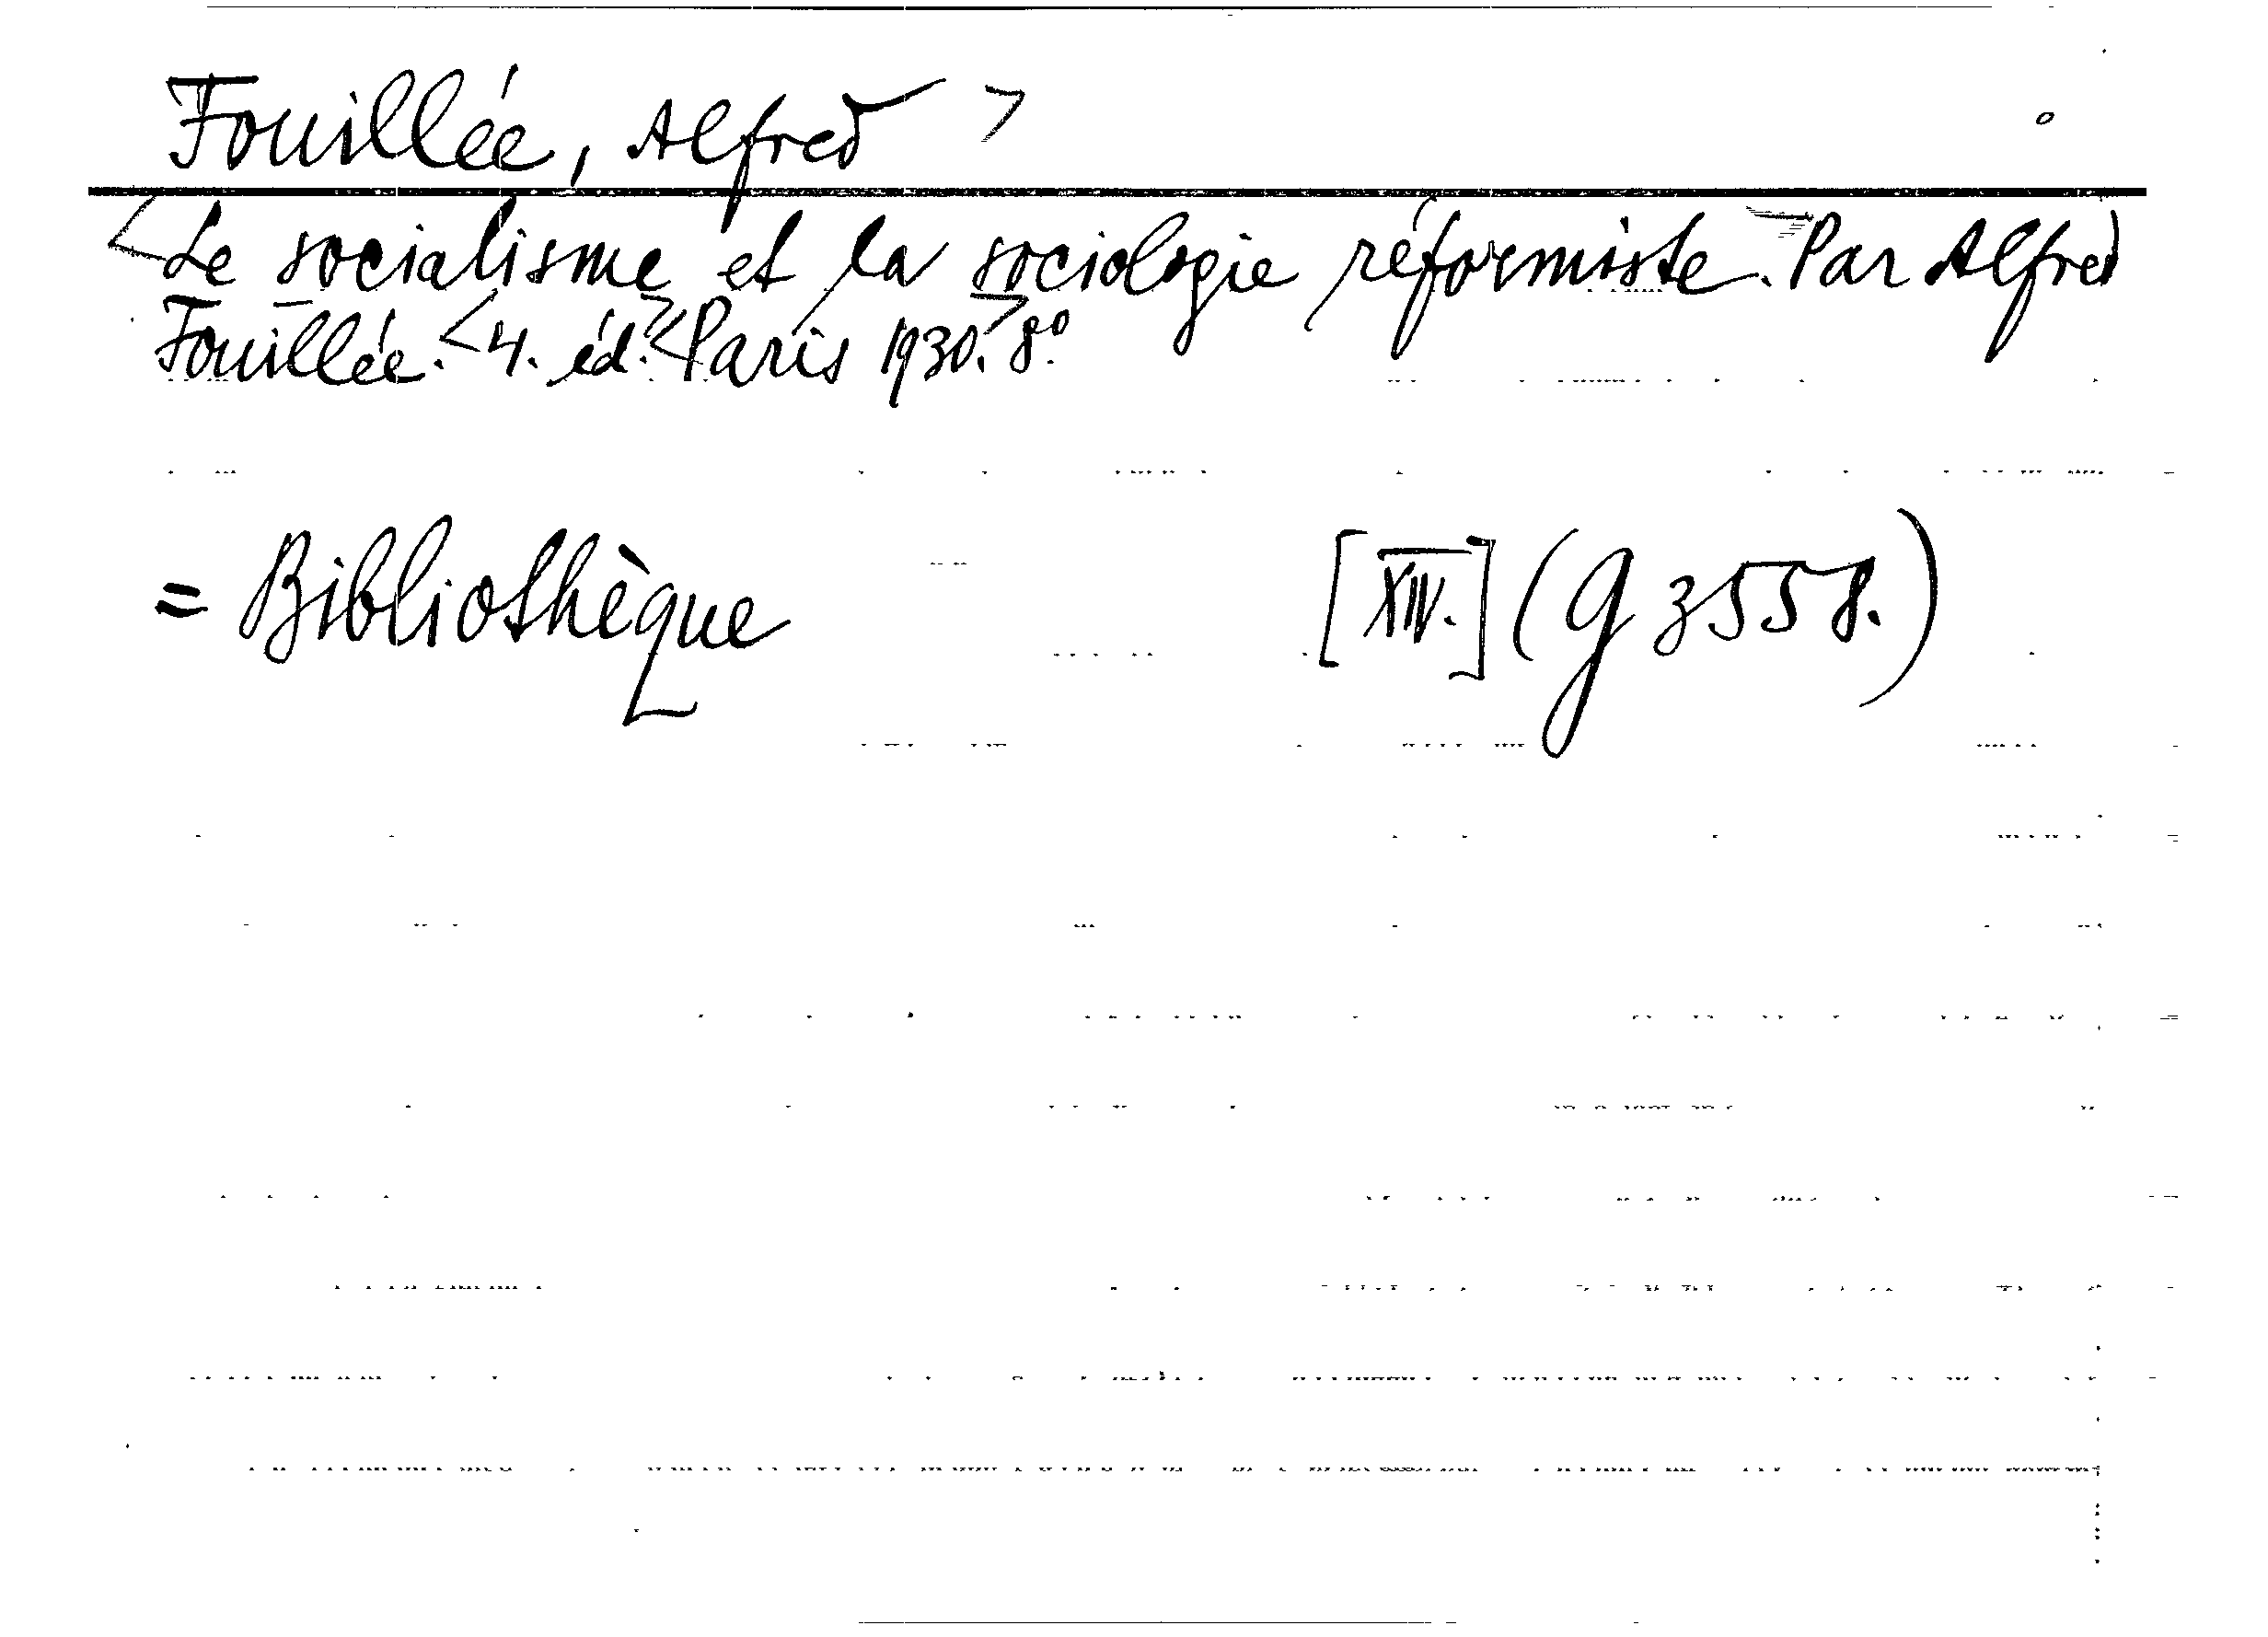 Fouillée, Alfred >
<Le socialisme et la sociologie réformiste.> Par Alfred
Fouillée. <4. éd.> <Paris 1930.> 8°.
= Bibliothèque [XIV.] (g 3558.)